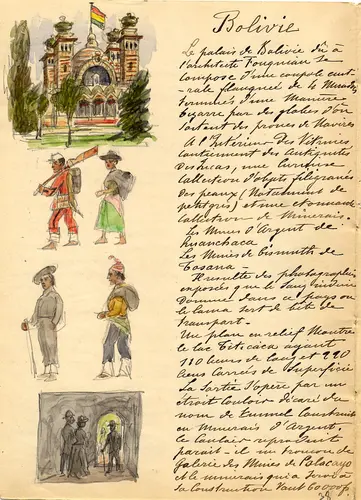 Bolivie
Le palais de Bolivie dû à
l'architecte Fouquiau se
compose d'une coupole cent-
rale flanquée de 4 Miradors
terminés d'une Manière
bizarre par des globes d'où
sortent des proues de Navires
A l'Intérieur des Vitrines
contiennent des Antiquités
des Incas, une Curieuse
Collection d'objets filigranés
des peaux (Notamment de
petit gris) et une
Collection de Minerais.
Les Mines d'Argent de
Huanchaca
Les Mines de bismuth de
Tasana.
Il résulte des photographies
exposées que le Sang Indien
Domine dans ce pays ou
le lama sert de bête de
transport.
Un plan en relief Montre
le lac Titicaca ayant
110 lieues de long et 220
lieues Carrés de Superficie
La Sortie s'opère par un
étroit Couloir décoré du
nom de tunnel Construit
en Minerais d'Argent.
Ce Couloir représente
parait-il un tronçon de
Galerie des Mines de Pulacayo
et le minerais qui a servi à
sa Construction Vaut 60000 f